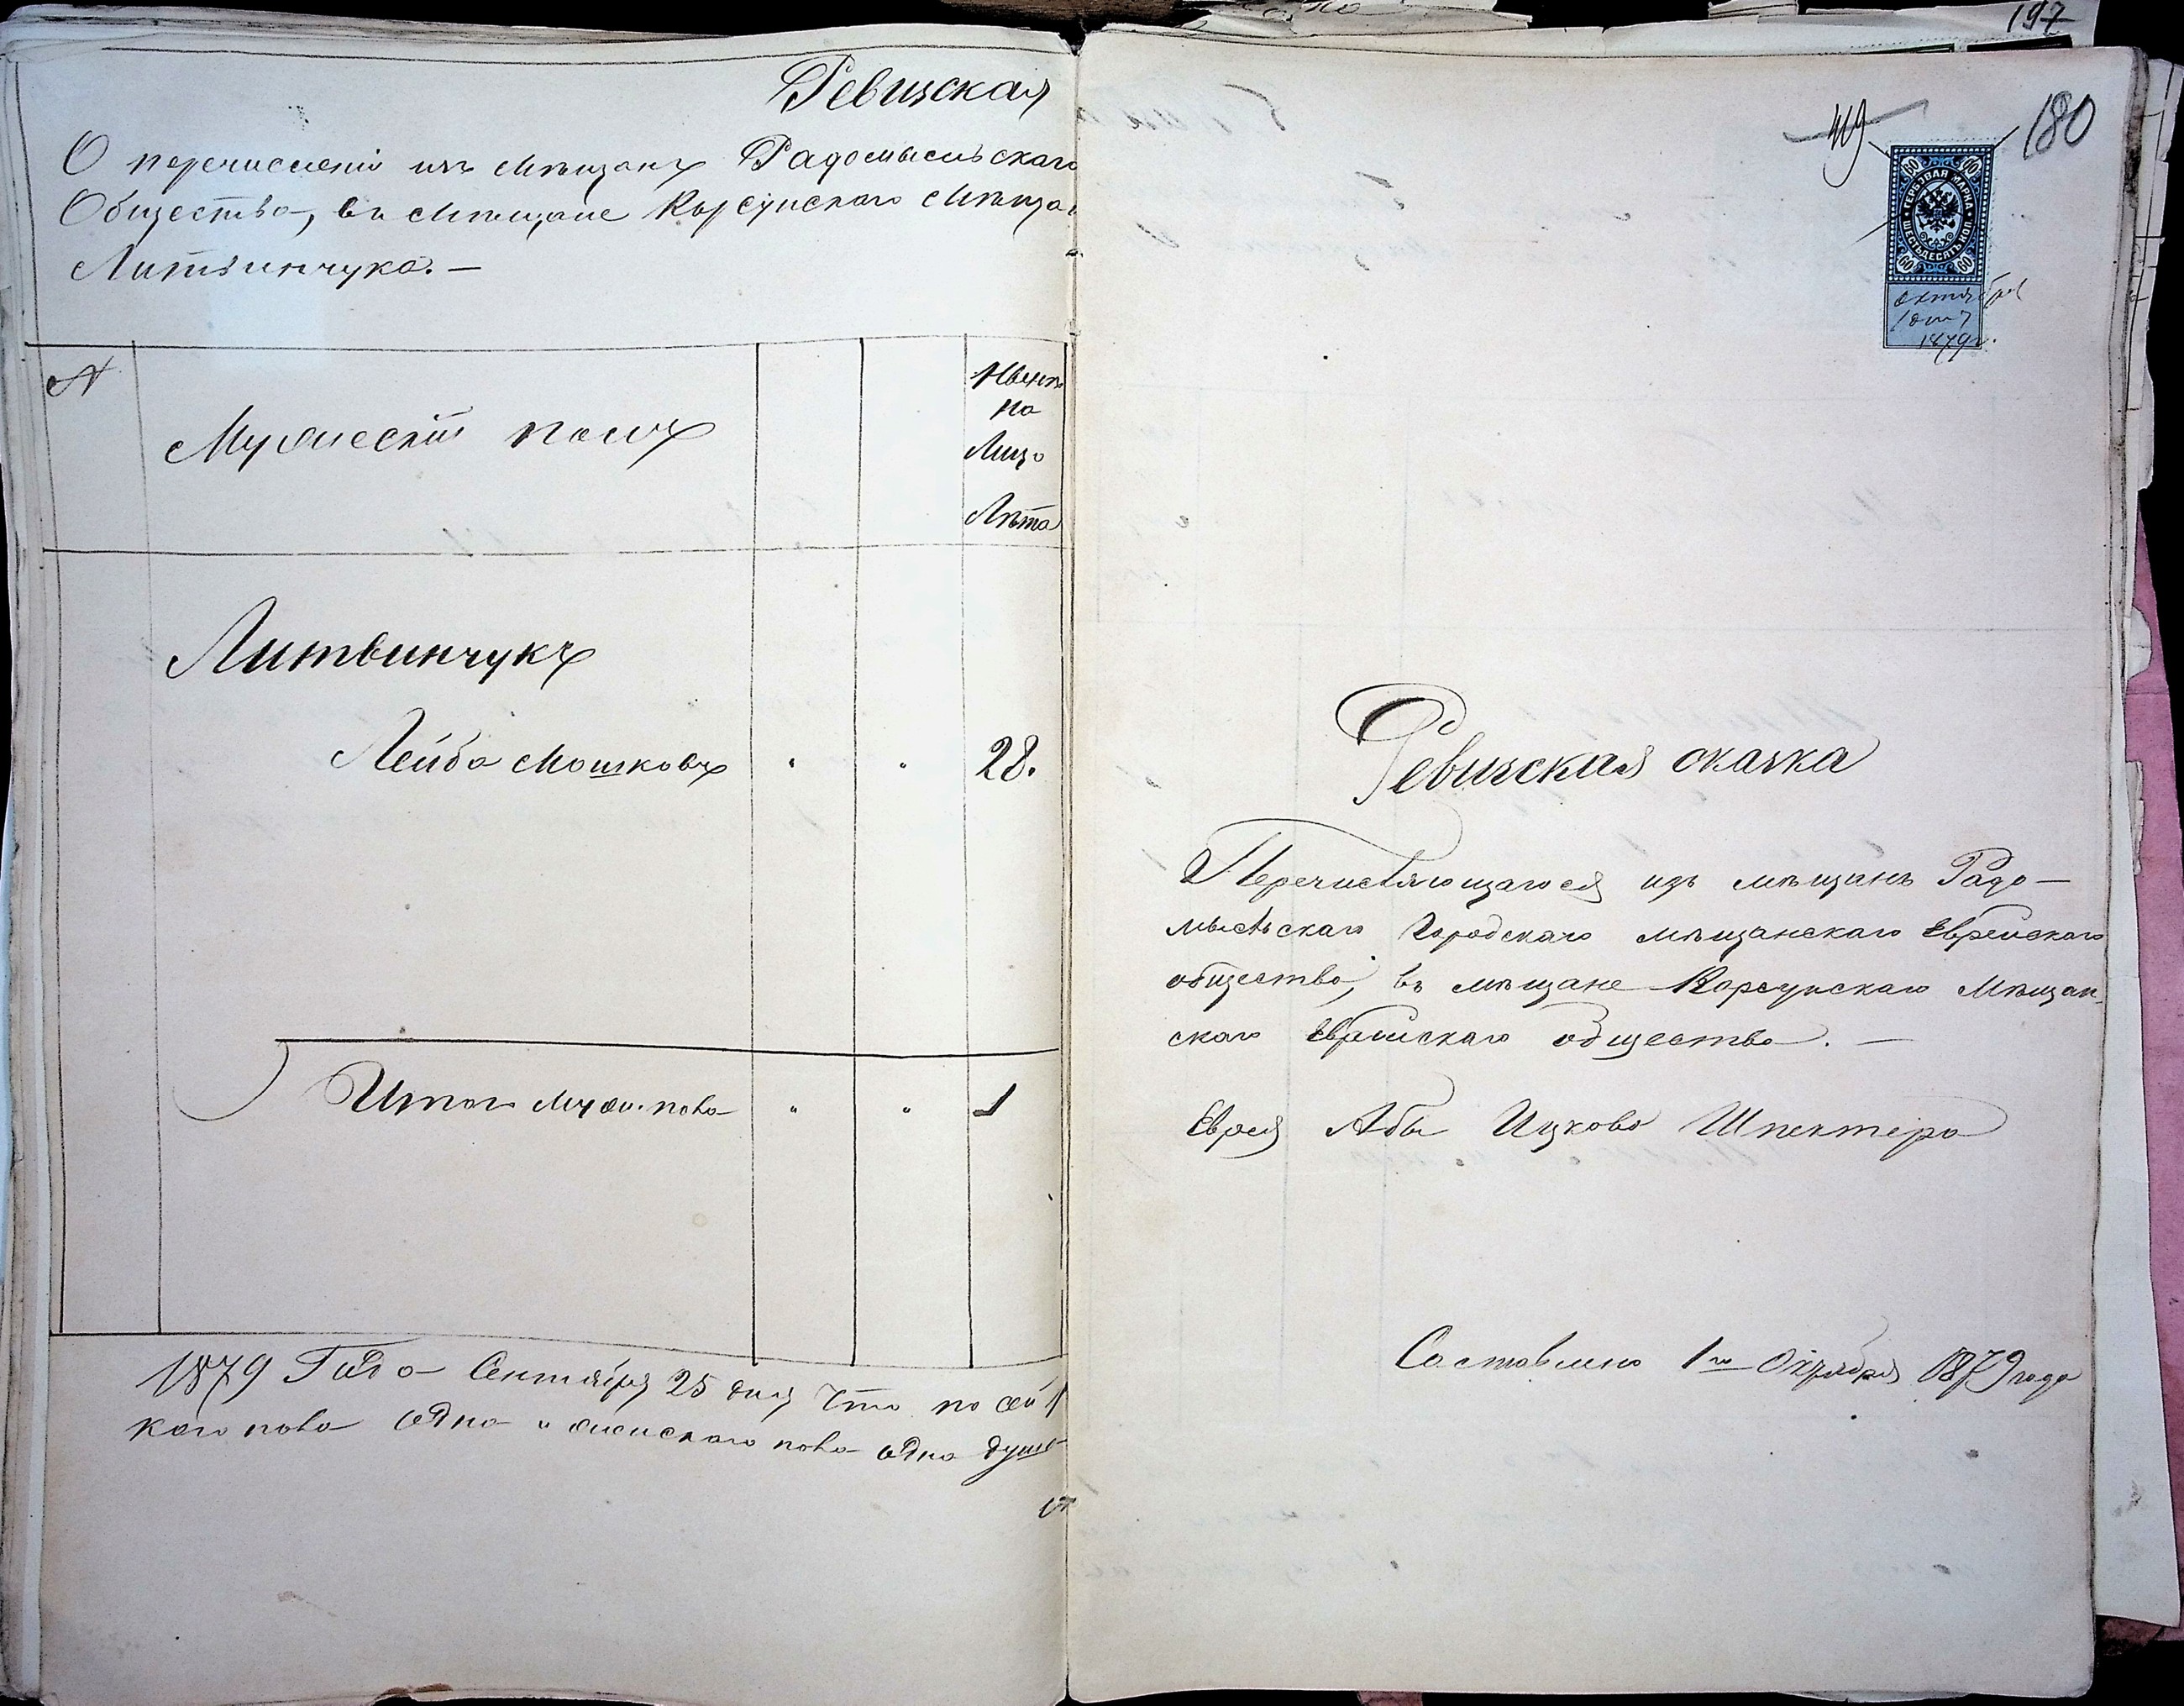 Ревизская
О перечислении изъ Мѣщанъ Радомысльскаго
Общества, въ Мѣщане Корсунскаго Мѣща
Литвинчука. —
№
Мужескій полъ
Нынѣ
на
Лицо
Лѣта
Литвинчукъ
Лейба Мошковъ " " 28.
Итого муж. пола " " 1
1879 Года Сентября 25 дня Что по сей
каго пола одна и женскаго пола одна душа
197
419
180
60 60
ГЕРБОВАЯ МАРКА
ШЕСТЬДЕСЯТЪ КОП.
60 60
октября
1 дня
1879 г.
Ревизская сказка
Перечисляющагося изъ мѣщанъ Радо—
мысльскаго Городскаго мѣщанскаго Еврейскаго
общества, въ мѣщане Корсунскаго Мѣщан
скаго Еврейскаго общества. —
Еврея Абы Ицкова Шпектера
Составлена 1го Октября 1879 года